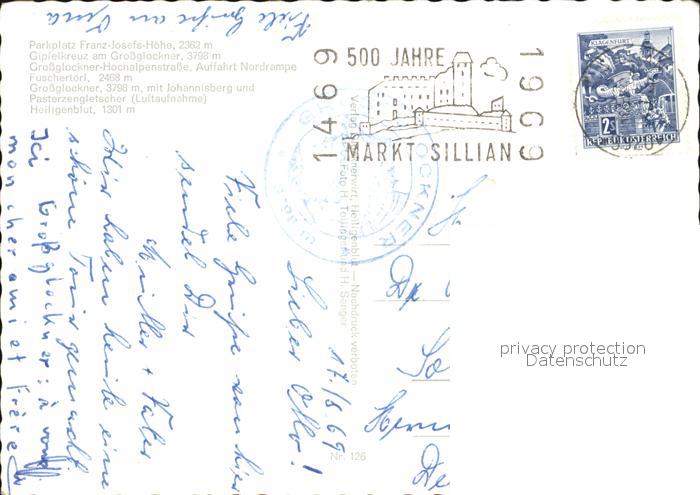 Viele Grüße an
Parkplatz Franz-Josefs-Höhe, 2362 m
Gipfelkreuz am Großglockner, 3798 m
Großglockner-Hochalpenstraße, Auffahrt Nordrampe
Fuschertörl, 2468 m
Großglockner, 3798 m, mit Johannisberg und
Pasterzengletscher (Luftaufnahme)
Heiligenblut, 1301 m
1469
500 JAHRE
MARKT SILLIAN
1969
KLAGENFURT
2S
REPUBLIK ÖSTERREICH
GLOCKNER
Heiligenblut — Nachdruck verboten
Nr. 126
17./8.69
Lieber Otto!
Viele Grüße von hier
sendet Dir
Mutter + Vater
Wir haben heute eine
schöne Tour gemacht
Ici Großglockner: à
mon cher ami et frère
Dr
privacy protection
Datenschutz